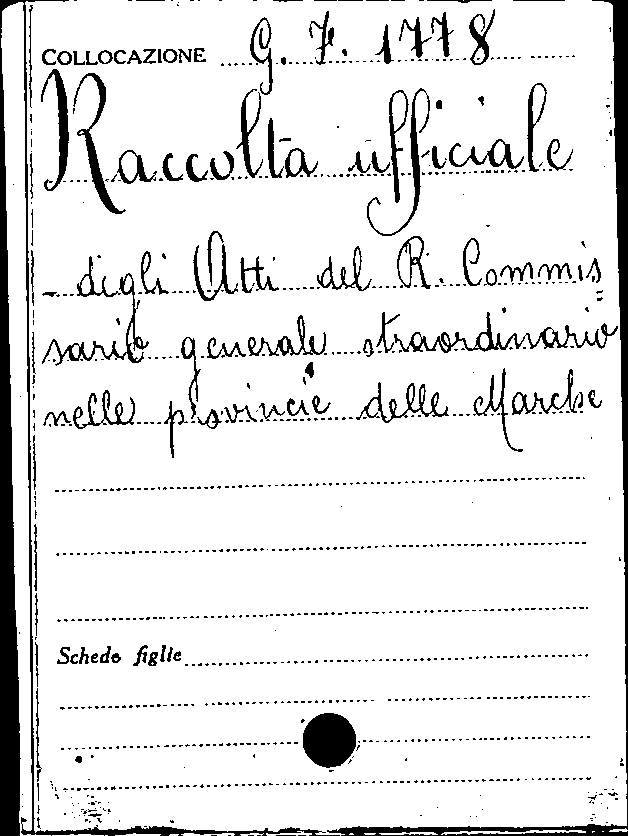 COLLOCAZIONE G. F. 1778
Raccolta ufficiale
- degli Atti del R. Commis=
sario generale straordinario
nelle provincie delle Marche
Schede figlie